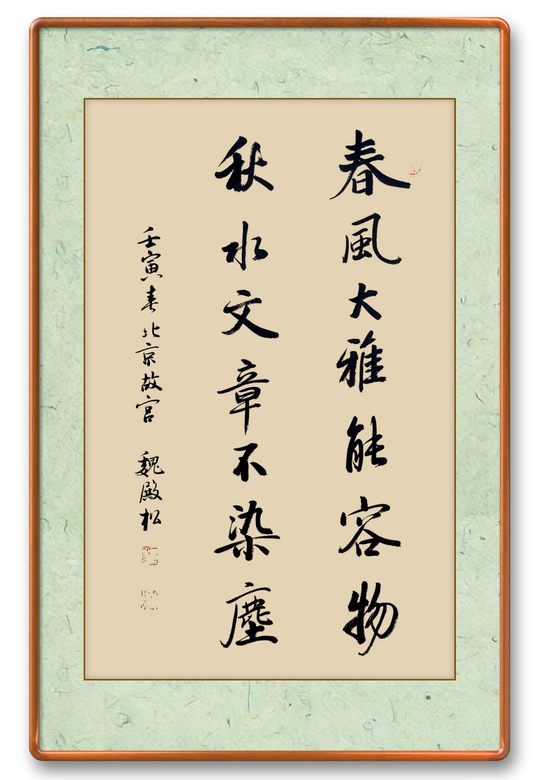 春風大雅能容物
秋水文章不染塵
壬寅春北京故宫 魏殿松